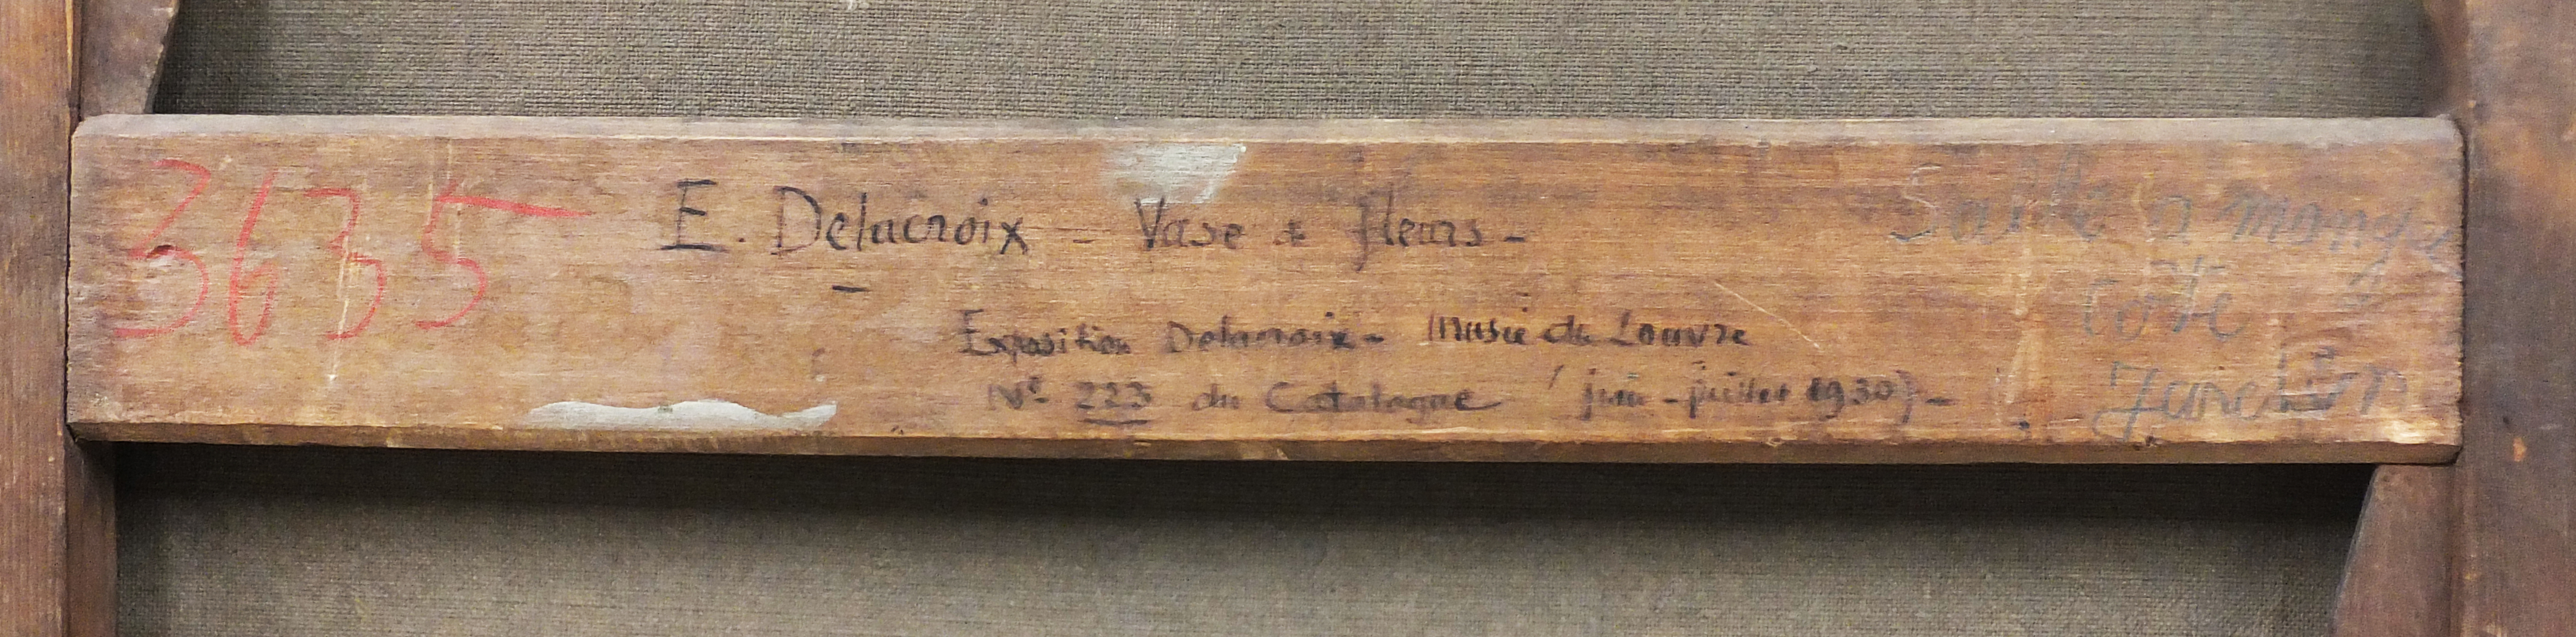 3635
E. Delacroix - Vase de fleurs -
Exposition Delacroix - Musée du Louvre
N° 223 du Catalogue (juin - juillet 1930) -
Salle a manger
coté